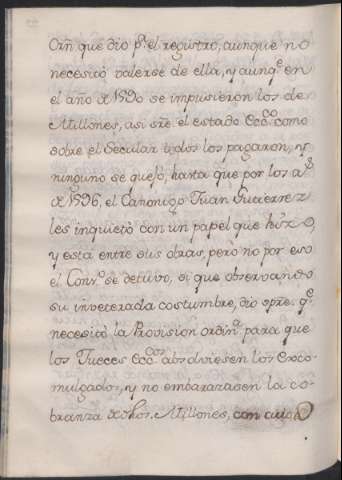 Orñ que dio pª el registro, aunque no
necesitò valerse de ella, y aunqᵉ en
el año de 1590 se impusieron los de
Millones, asi sreˢ el estado Eccᶜᵒ como
sobre el Secular todos los pagaron, y
ninguno se quejò, hasta que por los aˢ
de 1596, el Canonigo Juan Gutierrez
les inquietò con un papel que hizo,
y està entre sus obras, però no por eso
el Consᵒ se detuvo, si que observando
su inveterada costumbre, dio spreˢ qᵉ
necesitò la Provision ordinª para que
los Jueces Eccᶜᵒˢ absolviesen los Exco-
mulgados, y no embarazasen la co-
branza de dhos. Millones, con cuia